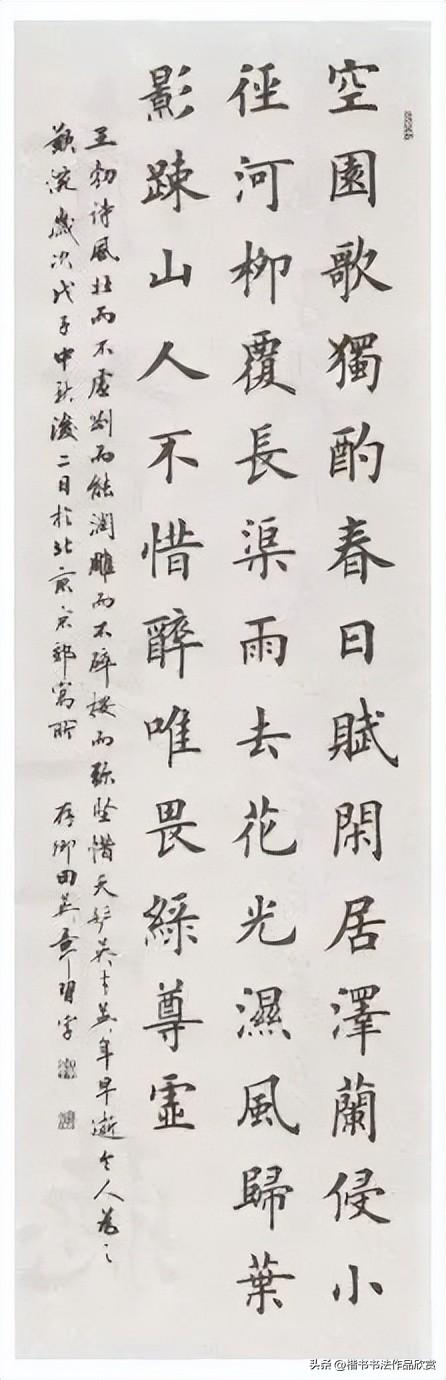 空園歌獨酌春日賦閑居澤蘭侵小
徑河柳覆長渠雨去花光濕風歸葉
影踈山人不惜醉唯畏綠尊虛
王勃詩風壯而不虛剛而能潤雕而不碎按而弥堅惜天妒英才英年早逝令人為之
歎歲次戊子中秋後二日於北京京郊寓所 田英章習字
头条 @楷书书法作品欣赏